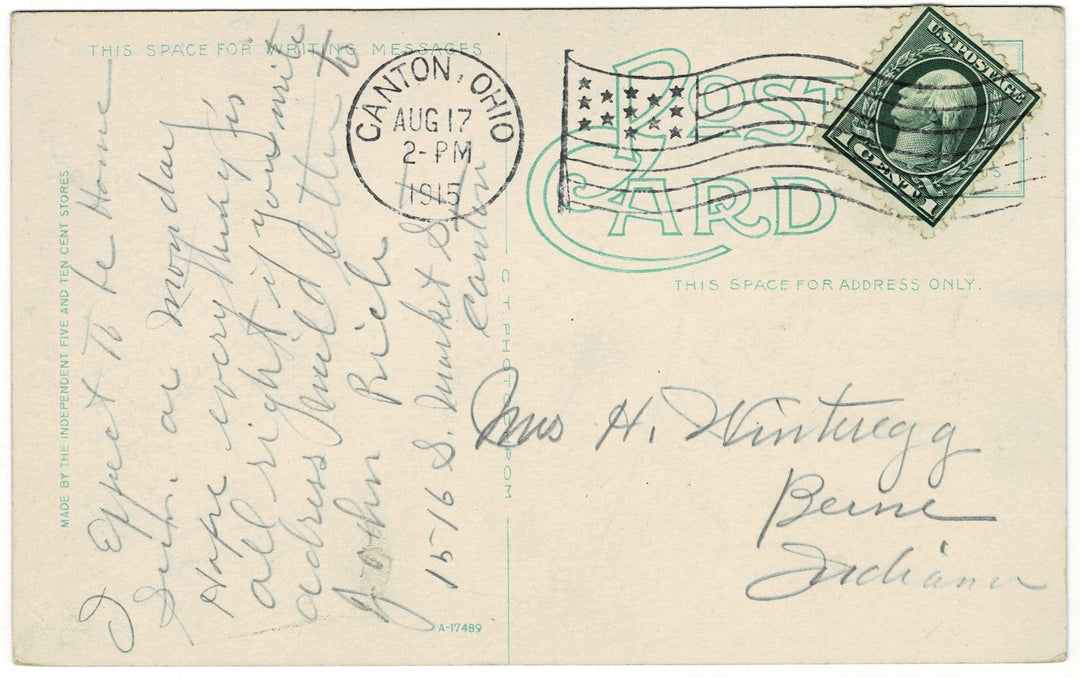 THIS SPACE FOR WRITING MESSAGES
POST CARD
CANTON, OHIO
AUG 17
2-PM
1915
U.S. POSTAGE
1 CENT 1
THIS SPACE FOR ADDRESS ONLY.
MADE BY THE INDEPENDENT FIVE AND TEN CENT STORES
I Expect To be Home
Sun. or Monday
Hope everything is
all right if you write
adress mild letter to
John Rich
1516 S. Market St
Canton
Mrs H. Winteregg
Berne
Indiana
A-17489